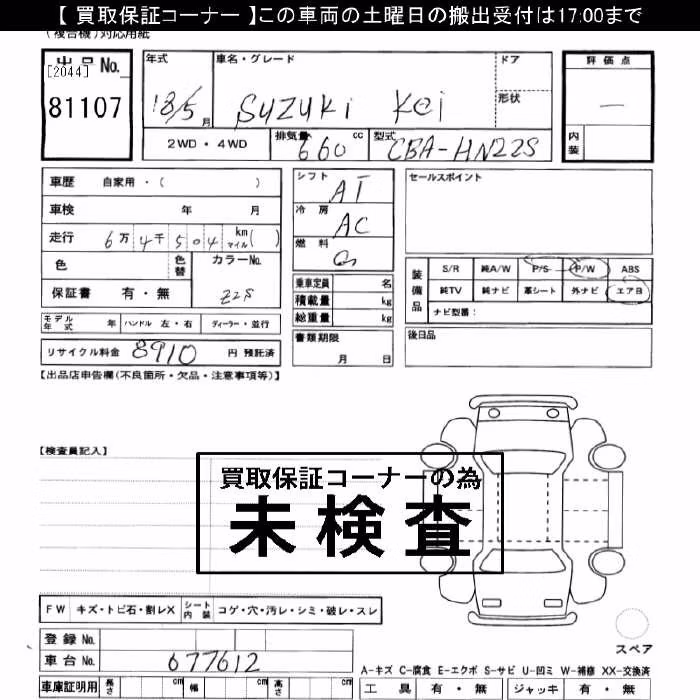 【 買取保証コーナー 】この車両の土曜日の搬出受付は17:00まで
(複合機)対応用紙
出品No.
[2044]
81107
年式
18/5月
車名・グレード
SUZUKI Kei
ドア
形状
評価点
—
内装
2WD・4WD
排気量 660 cc
型式 CBA-HN22S
車歴 自家用・( )
車検 年 月
走行 6万4千504 km マイル( )
色 色替 カラーNo.
保証書 有・無 Z2S
モデル年式 年 ハンドル 左・右 ディーラー・並行
リサイクル料金 8910 円 預託済
シフト AT
冷房 AC
燃料 G
乗車定員 名
積載量 kg
総重量 kg
書類期限
月 日
セールスポイント
装備品
S/R 純A/W P/S P/W ABS
純TV 純ナビ 革シート 外ナビ エアB
ナビ型番:
後日品
【出品店申告欄(不良箇所・欠品・注意事項等)】
【検査員記入】
買取保証コーナーの為
未検査
FW キズ・トビ石・割レX シート内装 コゲ・穴・汚レ・シミ・破レ・スレ
登録No.
車台No. 677612
車庫証明用 長さ cm 幅 cm 高さ cm
スペア
A-キズ C-腐食 E-エクボ S-サビ U-凹ミ W-補修 XX-交換済
工具 有・無 ジャッキ 有・無